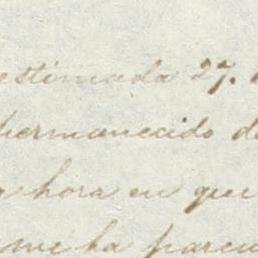 estimada 27.
permanecido d
a hora en que
me ha parecu